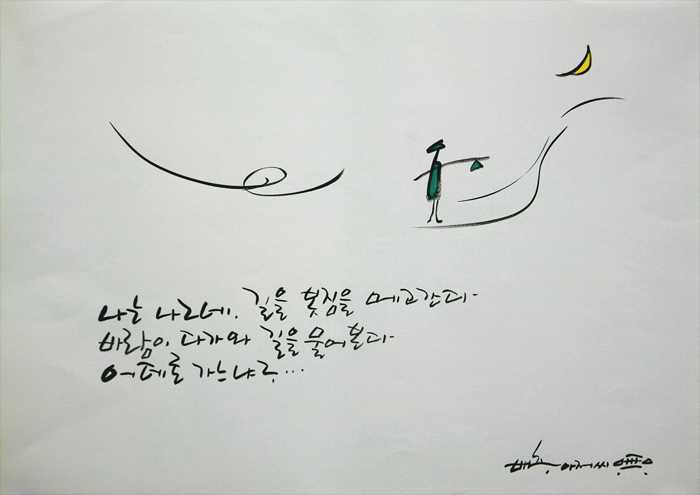 나는 나그네. 길을 봇짐을 메고간다.
바람이 다가와 길을 물어본다
어데로 가느냐구...
아저씨